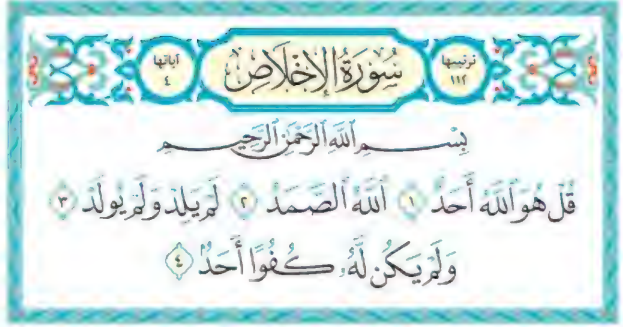 ترتيبها ١١٢ سُورَةُ الْإِخْلَاصِ آياتها ٤
بِسْمِ ٱللَّهِ ٱلرَّحْمَٰنِ ٱلرَّحِيمِ
قُلْ هُوَ ٱللَّهُ أَحَدٌ ١ ٱللَّهُ ٱلصَّمَدُ ٢ لَمْ يَلِدْ وَلَمْ يُولَدْ ٣
وَلَمْ يَكُن لَّهُۥ كُفُوًا أَحَدٌۢ ٤